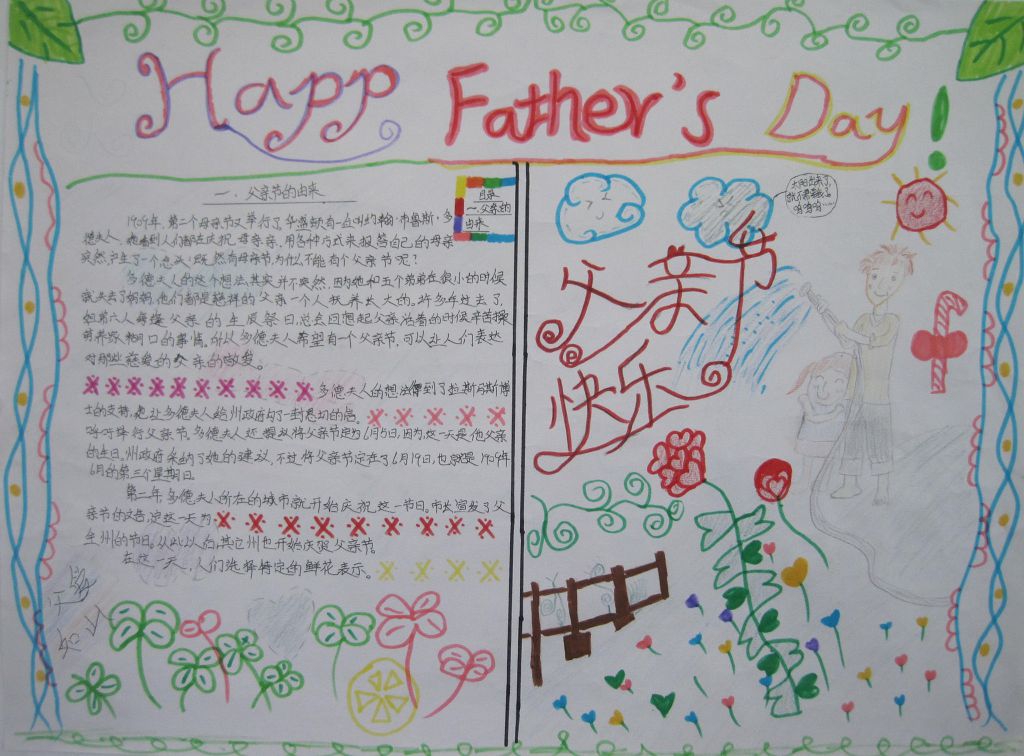 Happy Father's Day!
一、父亲节的由来
目录
一、父亲的
由来
1909年,第一个母亲节又举行了,华盛顿有一位叫约翰·布鲁斯·多
德夫人,她看到人们都在庆祝母亲亲,用各种方式来报答自己的母亲
突然,产生了一个念头:既然有母亲节,为什么不能有个父亲节呢?
多德夫人的这个想法,其实并不突然,因为她和五个弟弟在很小的时候
就失去了妈妈,他们都是慈祥的父亲一个人抚养长大的。许多年过去了,
每逢父亲的生辰祭日,总会回想起父亲
养家糊口的事情,所以多德夫人希望有一个父亲节,可以让人们表达
对那些慈爱的父亲的敬爱。
多德夫人的想法得到了拉斯马斯博
士的支持,她让多德夫人给州政府的一封恳切的信。
呼吁举行父亲节。多德夫人还提议将父亲节定为6月5日,因为这一天是他父亲
的生日。州政府采纳了她的建议,不过将父亲节定在了6月19日,也就是1909年
6月的第三个星期日。
第二年多德夫人所在的城市就开始庆祝这一节日。市长宣发了父
亲节的文告,定这一天为
全州的节日。从此以后,其它州也开始庆祝父亲节。
在这一天,人们选择特定的鲜花表示。
太阳出来了,
父亲节
快乐